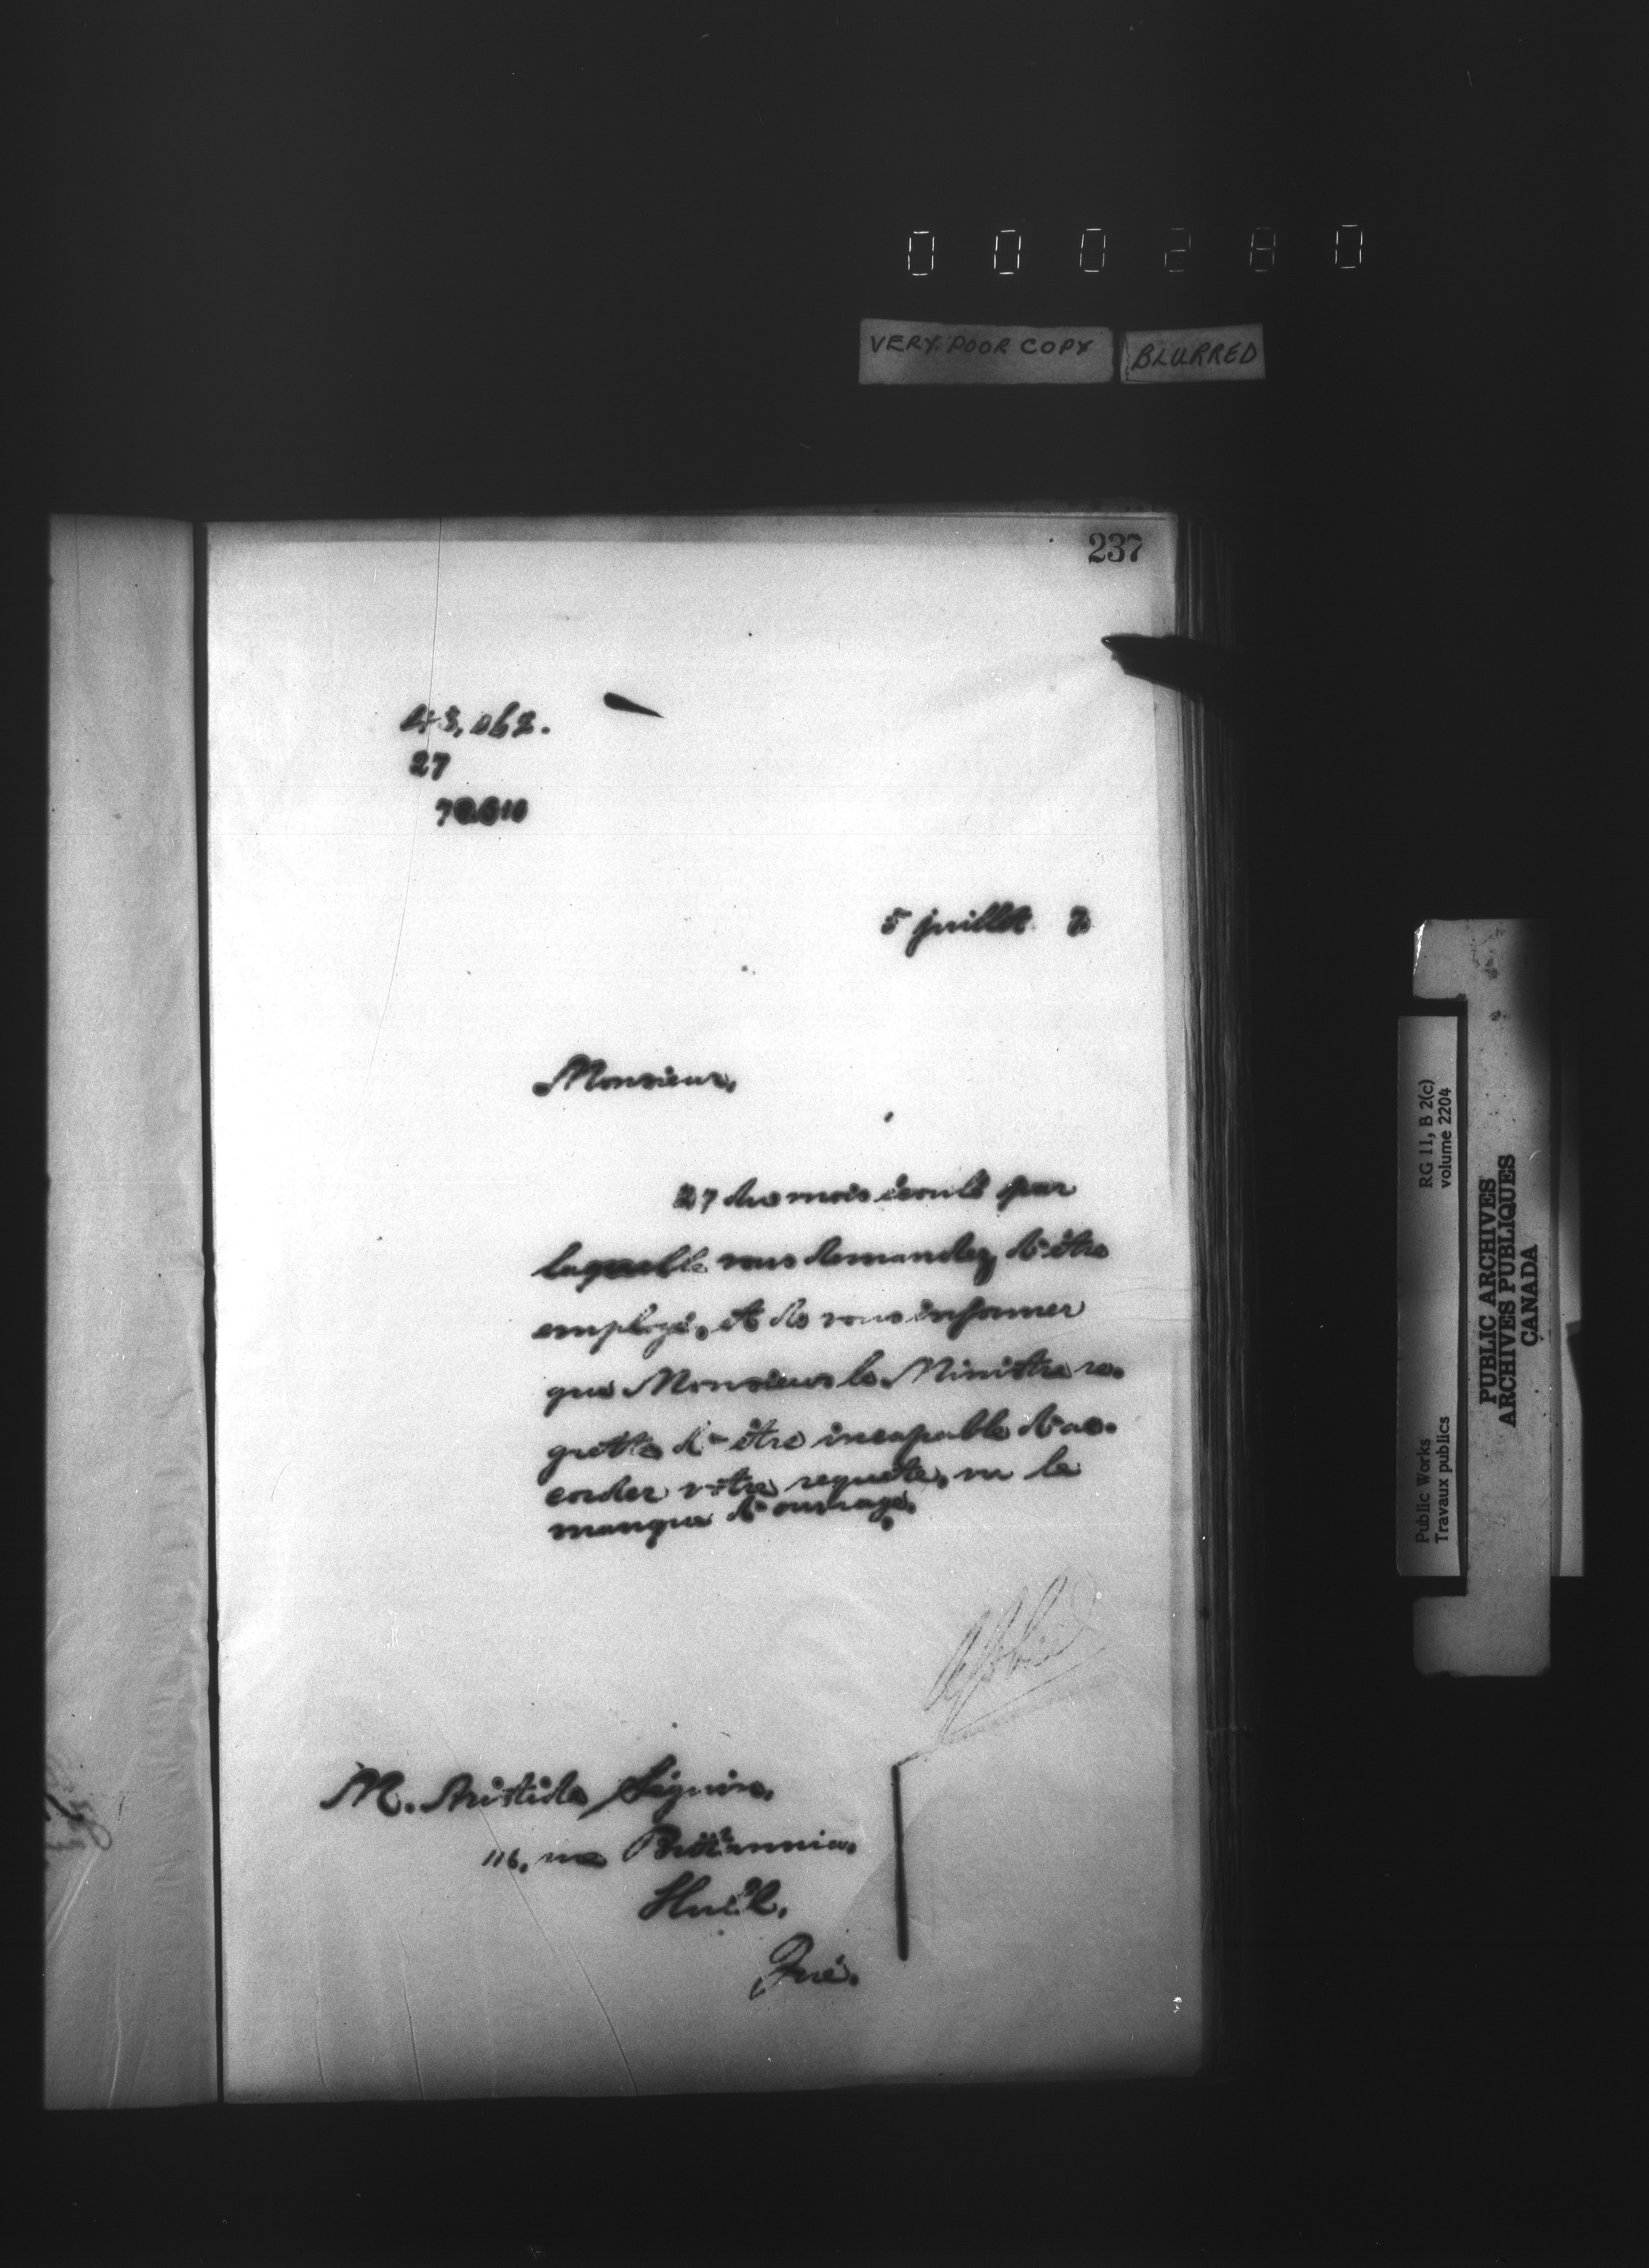 000280
VERY POOR COPY
BLURRED
237
43,062.
27
5 juillet 7
Monsieur,
27 du mois écoulé par
laquelle vous demandez d'être
employé, et de vous informer
que Monsieur le Ministre re-
grette d'être incapable d'ac-
corder votre requête, vu le
manque d'ouvrage.
M. Aristide Séguin,
116, rue Britannia,
Hull,
Qué.
RG 11, B 2(c)
volume 2204
Public Works
Travaux publics
PUBLIC ARCHIVES
ARCHIVES PUBLIQUES
CANADA